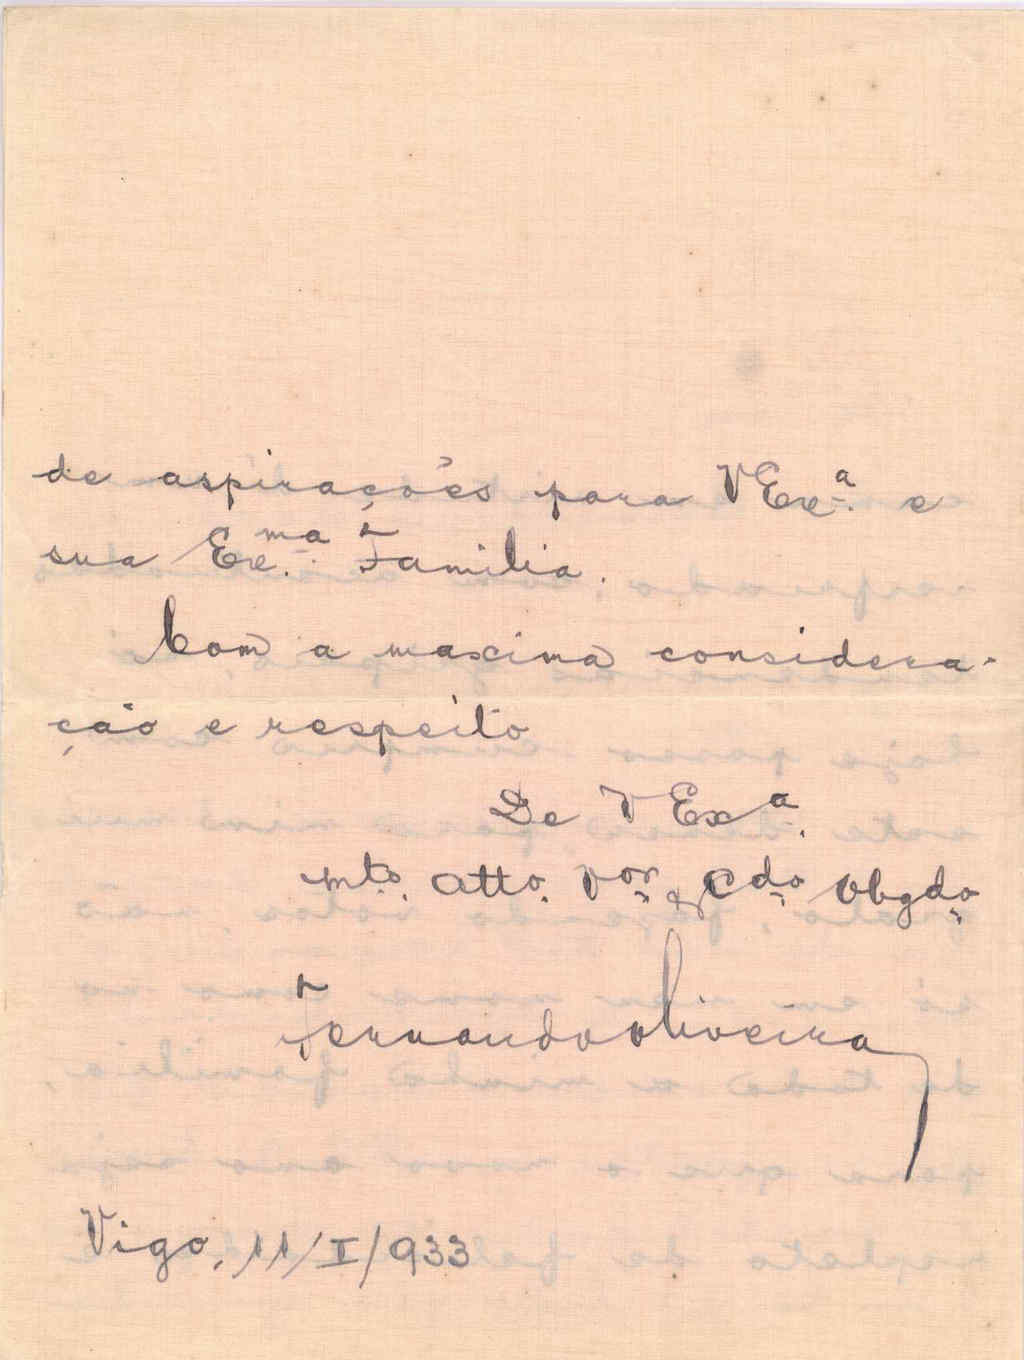 de aspirações para VExª. e
sua Exma. Familia.
Com a maxima considera-
ção e respeito
De V Exª.
mto. atto. Vor. & Cdo. Obgdo.
Fernando Oliveira
Vigo, 11/I/933